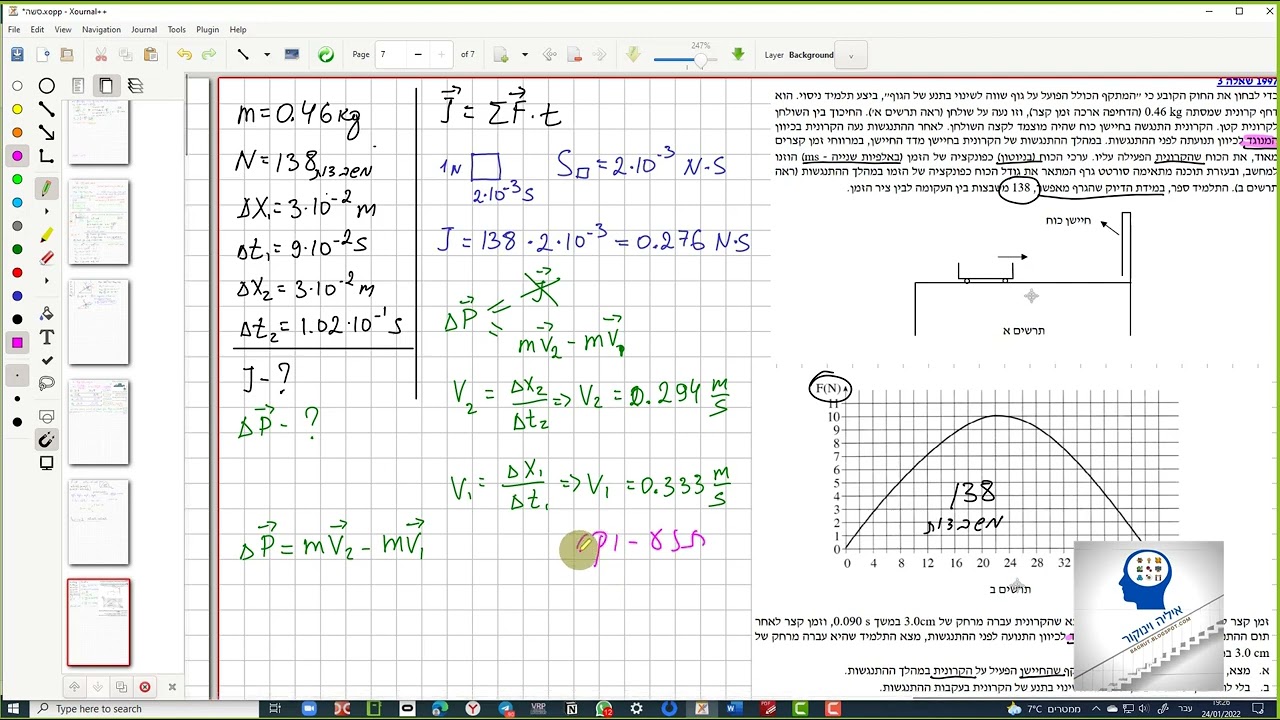 *סשה.xopp - Xournal++
File Edit View Navigation Journal Tools Plugin Help
Page 7 − + of 7 247% Layer Background
m = 0.46 kg
N = 138 משבצות
Δx₁ = 3·10⁻² m
Δt₁ = 9·10⁻² s
Δx₂ = 3·10⁻² m
Δt₂ = 1.02·10⁻¹ s
J - ?
ΔP⃗ - ?
ΔP⃗ = mV⃗₂ - mV⃗₁
J⃗ = ΣF⃗·t
1N
2·10⁻³ S
S□ = 2·10⁻³ N·S
J = 138·2·10⁻³ = 0.276 N·S
ΔP⃗ = J⃗
= mV⃗₂ - mV⃗₁
V₂ = Δx₂/Δt₂ => V₂ = 0.294 m/s
V₁ = Δx₁/Δt₁ => V₁ = 0.333 m/s
1997 שאלה 3
כדי לבחון את החוק הקובע כי "המתקף הכולל הפועל על גוף שווה לשינוי בתנע של הגוף", ביצע תלמיד ניסוי. הוא
דחף קרונית שמסתה 0.46 kg (הדחיפה ארכה זמן קצר), וזו נעה על שולחן (ראה תרשים א'). החיכוך בין השולחן
לקרונית קטן. הקרונית התנגשה בחיישן כוח שהיה מוצמד לקצה השולחן. לאחר ההתנגשות נעה הקרונית בכיוון
המנוגד לכיוון תנועתה לפני ההתנגשות. במהלך ההתנגשות של הקרונית בחיישן מדד החיישן, במרווחי זמן קצרים
מאוד, את הכוח שהקרונית הפעילה עליו. ערכי הכוח (בניוטון) כפונקציה של הזמן (באלפיות שנייה - ms) הוזנו
למחשב, ובעזרת תוכנה מתאימה סורטט גרף המתאר את גודל הכוח כפונקציה של הזמן במהלך ההתנגשות (ראה
תרשים ב). התלמיד ספר, במידת הדיוק שהגרף מאפשר, 138 משבצות בין העקומה לבין ציר הזמן.
חיישן כוח
תרשים א
F(N)
11
10
9
8
7
6
5
4
3
2
1
0
138
משבצות
0 4 8 12 16 20 24 28 32
תרשים ב
איליה וינוקור
BAGRUT.BLOGSPOT.COM
זמן קצר שהקרונית עברה מרחק של 3.0cm במשך 0.090 s, וזמן קצר לאחר
תום ההתנ לכיוון התנועה לפני ההתנגשות, מצא התלמיד שהיא עברה מרחק של
3.0 cm
א. מצא, שהחיישן הפעיל על הקרונית במהלך ההתנגשות.
ב. בלי שינוי בתנע של הקרונית בעקבות ההתנגשות.
Type here to search
7°C ממטרים
עבר
19:26
24/01/2022